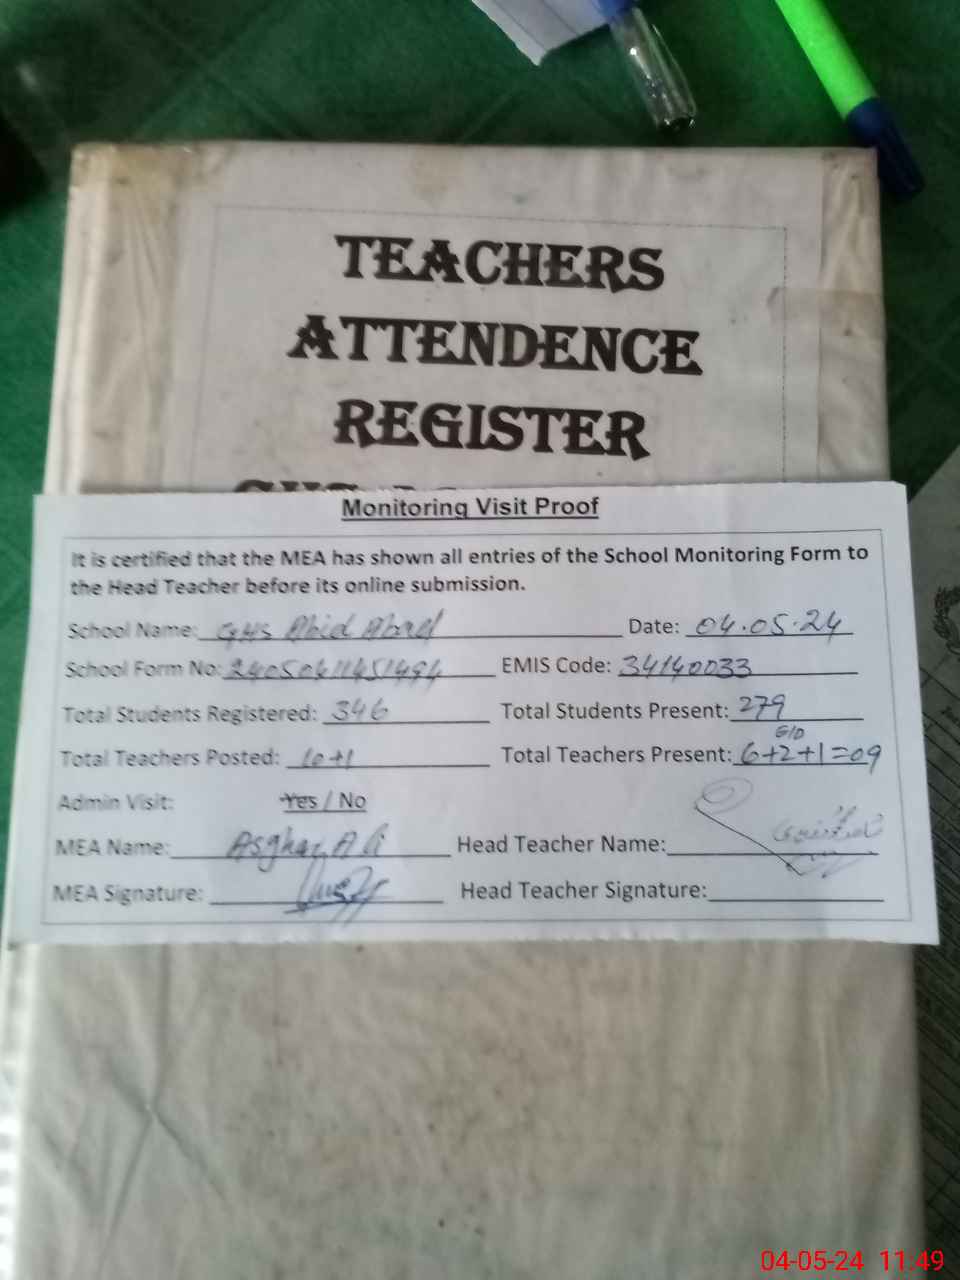 TEACHERS
ATTENDENCE
REGISTER
Monitoring Visit Proof
It is certified that the MEA has shown all entries of the School Monitoring Form to
the Head Teacher before its online submission.
School Name: GHS Abid Abad Date: 04.05.24
School Form No: EMIS Code: 34140033
Total Students Registered: 346 Total Students Present: 279
Total Teachers Posted: 10+1 Total Teachers Present: 6+2+1=09
Admin Visit: Yes / No
MEA Name: Asghar Ali Head Teacher Name:
MEA Signature: Head Teacher Signature:
04-05-24 11:49